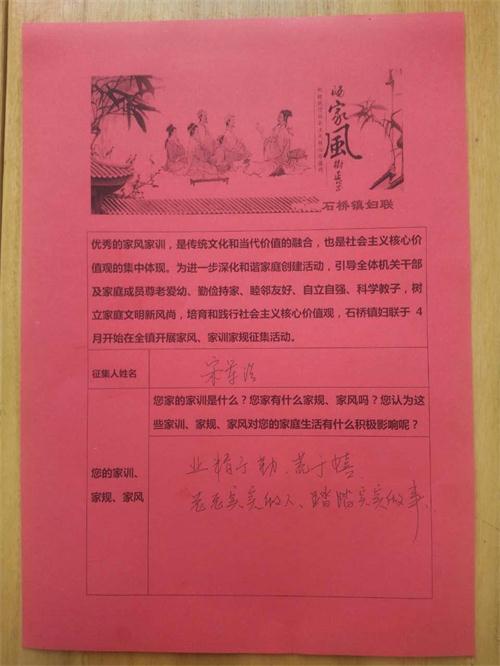 家風
石桥镇妇联
优秀的家风家训，是传统文化和当代价值的融合，也是社会主义核心价
值观的集中体现。为进一步深化和谐家庭创建活动，引导全体机关干部
及家庭成员尊老爱幼、勤俭持家、睦邻友好、自立自强、科学教子，树
立家庭文明新风尚，培育和践行社会主义核心价值观，石桥镇妇联于 4
月开始在全镇开展家风、家训家规征集活动。
征集人姓名
宋
您家的家训是什么？您家有什么家规、家风吗？您认为这
些家训、家规、家风对您的家庭生活有什么积极影响呢？
您的家训、
家规、家风
业精于勤、荒于嬉
老老实实做人、踏踏实实做事、